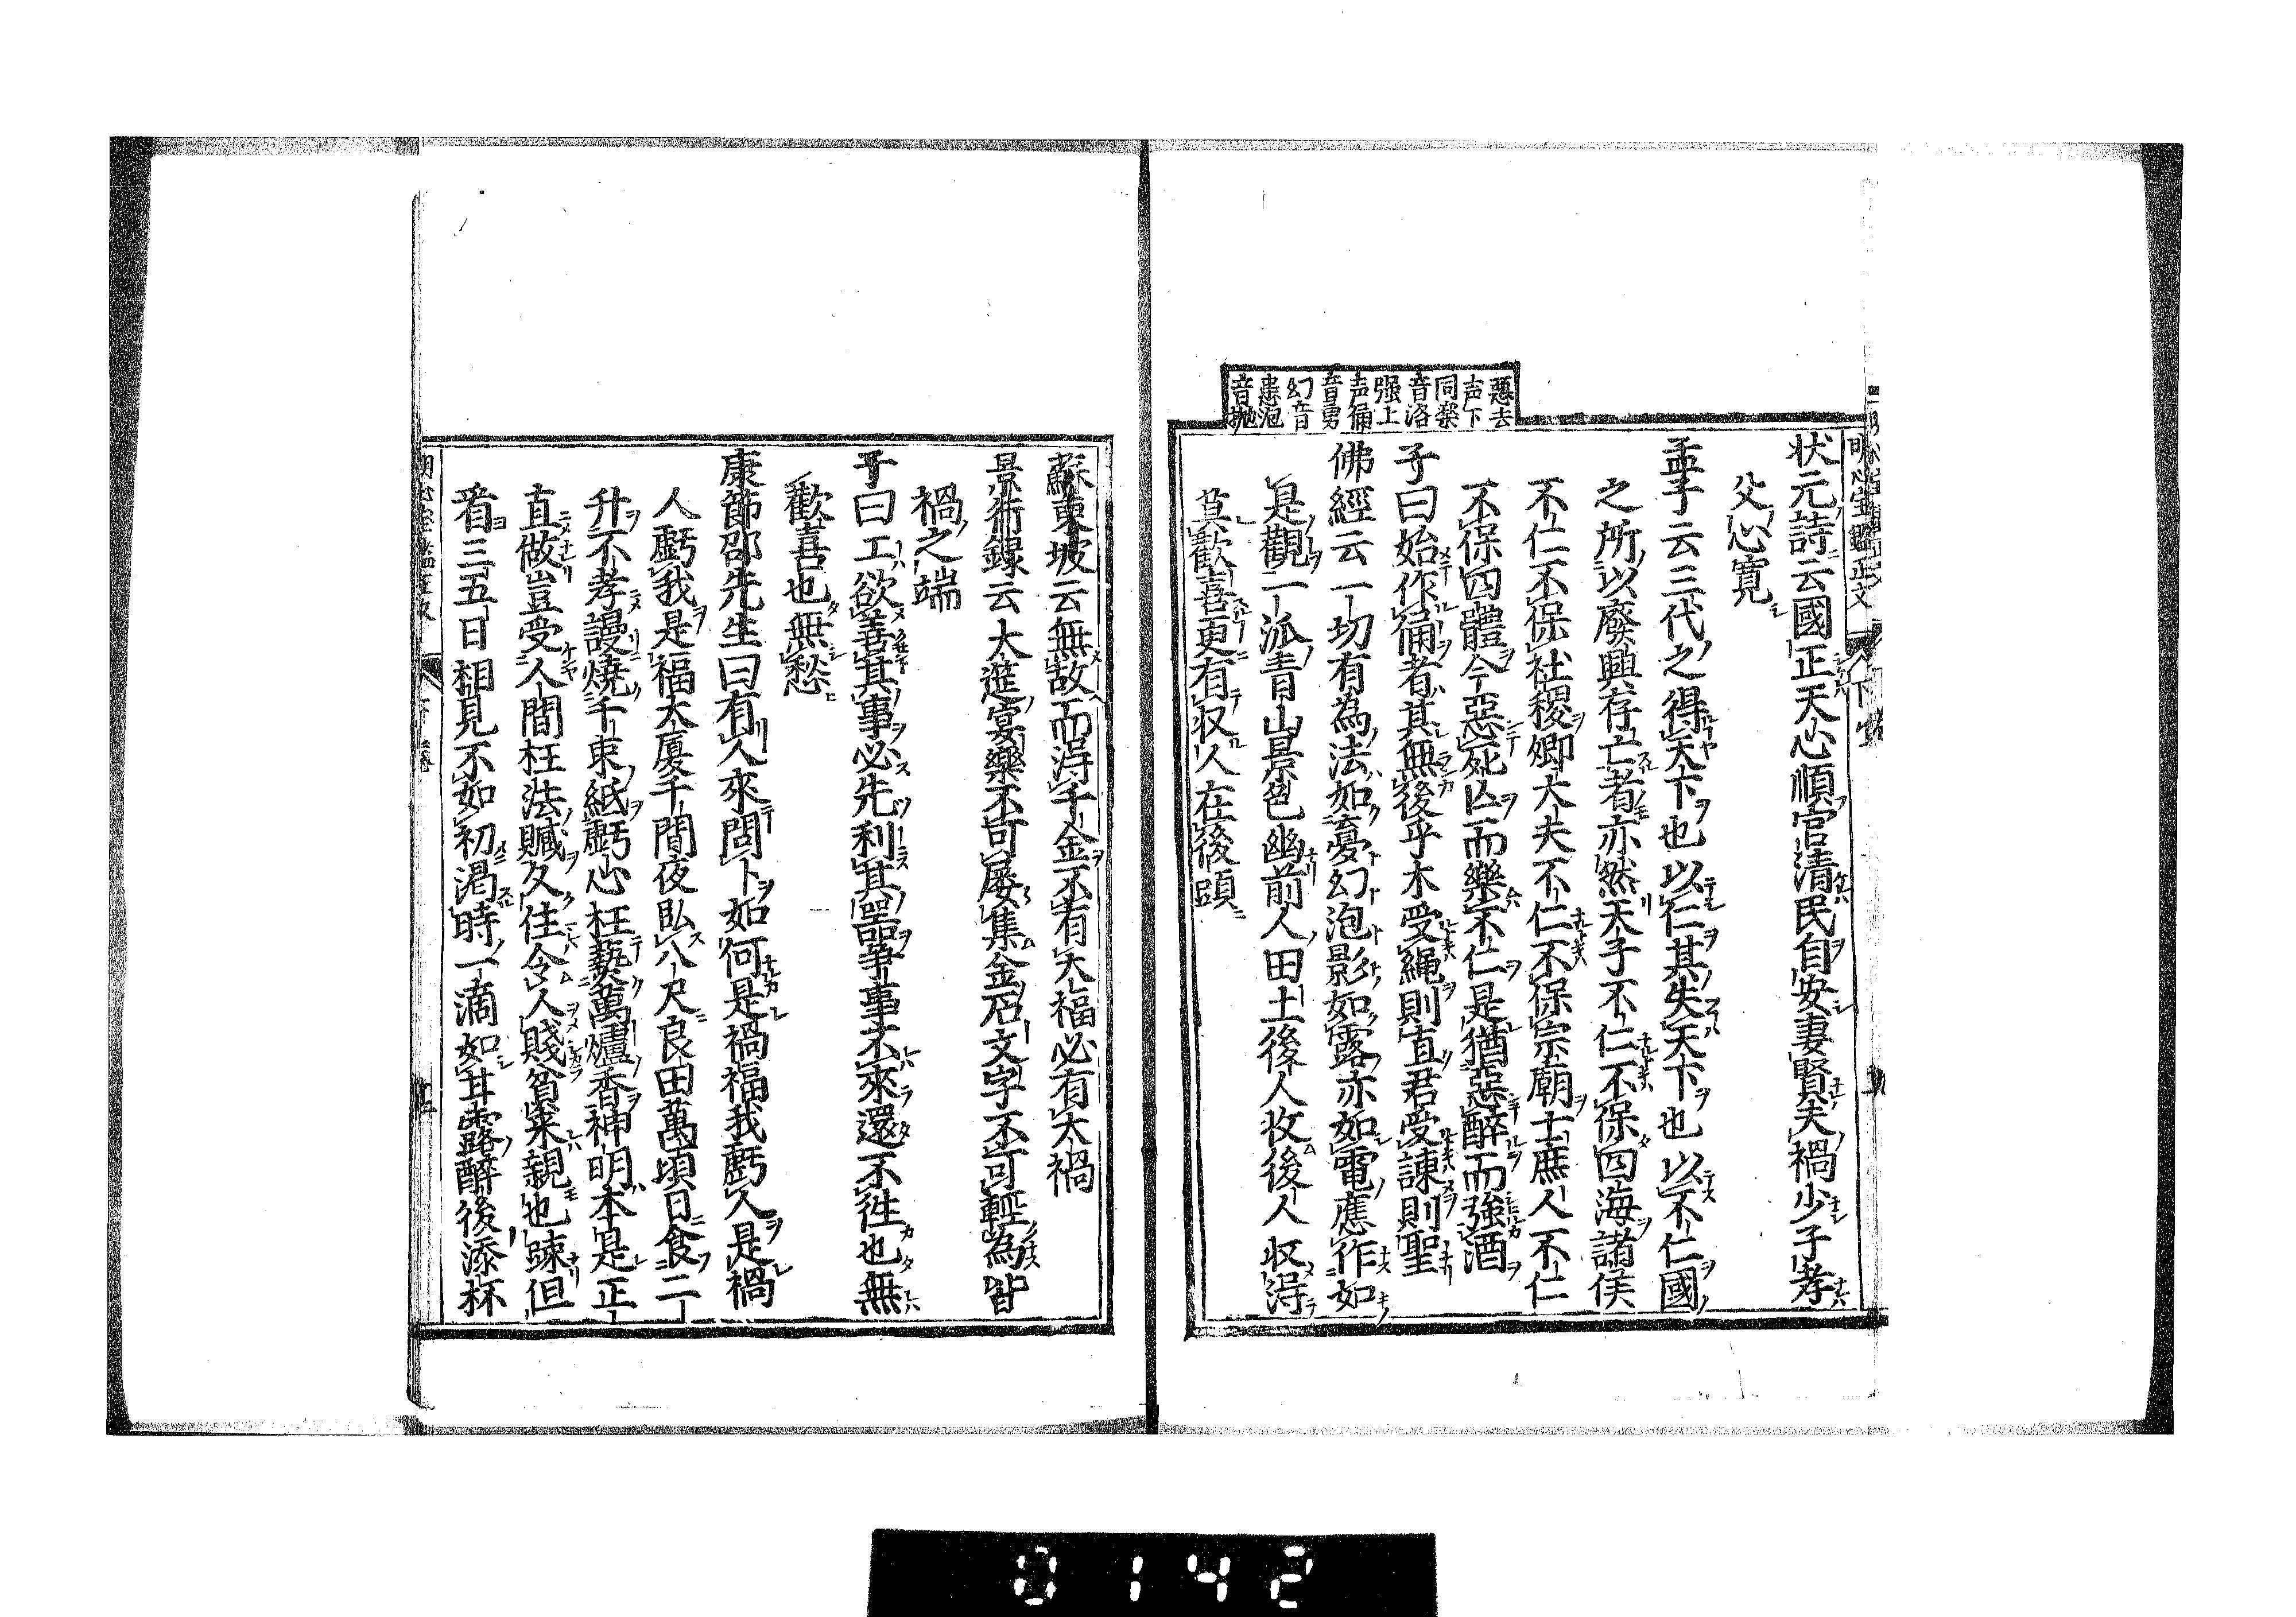 惡去
声下
同樂
音洛
强上
声俑
音勇
幻音
患泡
音抛
状元詩云國正天心順官清民自安妻賢夫禍少子孝
父心寛
孟子云三代之得天下也以仁其失天下也以不仁國
之所以廢興存亡者亦然天子不仁不保四海諸侯
不仁不保社稷卿大夫不仁不保宗廟士庶人不仁
不保四體今惡死亾而樂不仁是猶惡醉而強酒
子曰始作俑者其無後乎木受繩則直君受諌則聖
佛經云一切有為法如夢幻泡影如露亦如電應作如
是觀一派青山景色幽前人田土後人收後人収得
莫歡喜更有収人在後頭
蘇東坡云無故而得千金不有大福必有大禍
景術録云大進宴樂不可屡集金石文字不可輕為皆
禍之端
子曰工欲善其事必先利其噐爭事不來還不徃也無
歡喜也無愁
康節邵先生曰有人來問卜如何是禍福我虧人是禍
人虧我是福大厦千間夜臥八尺良田萬頃日食二
升不孝謾燒千束紙虧心枉爇萬爐香神明本是正
直做豈受人間枉法贓久住令人賤貧來親也踈但
看三五日相見不如初渇時一滴如甘露醉後添杯